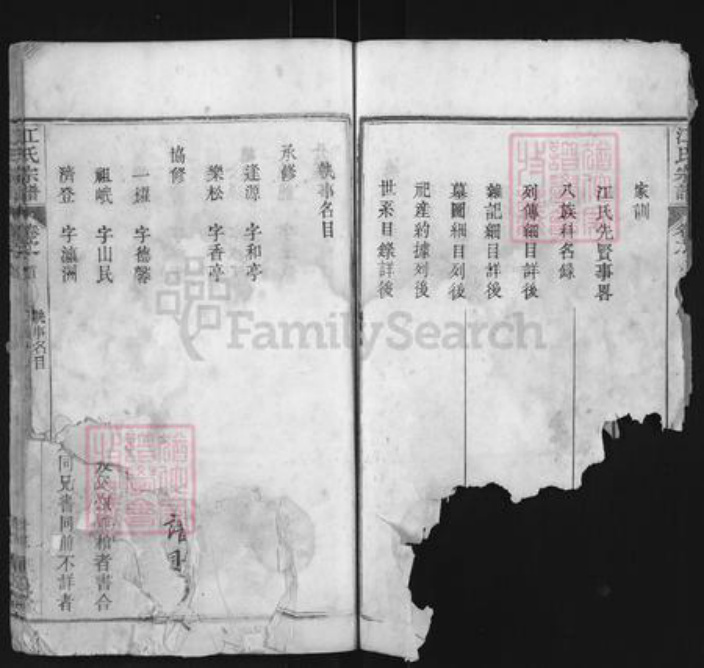 家訓
江氏先賢事畧
入族科名錄
列傳細目詳後
雜記細目詳後
墓圖細目列後
祀產約據列後
世系目錄詳後
執事名目
承修
逢源 字和亭
樂松 字香亭
協修
一擢 字德馨
祖峨 字山民
濟登 字瀛洲
者書合
同兄書同前不詳者
譜目
江氏宗譜
執事名目
江氏宗譜
FamilySearch